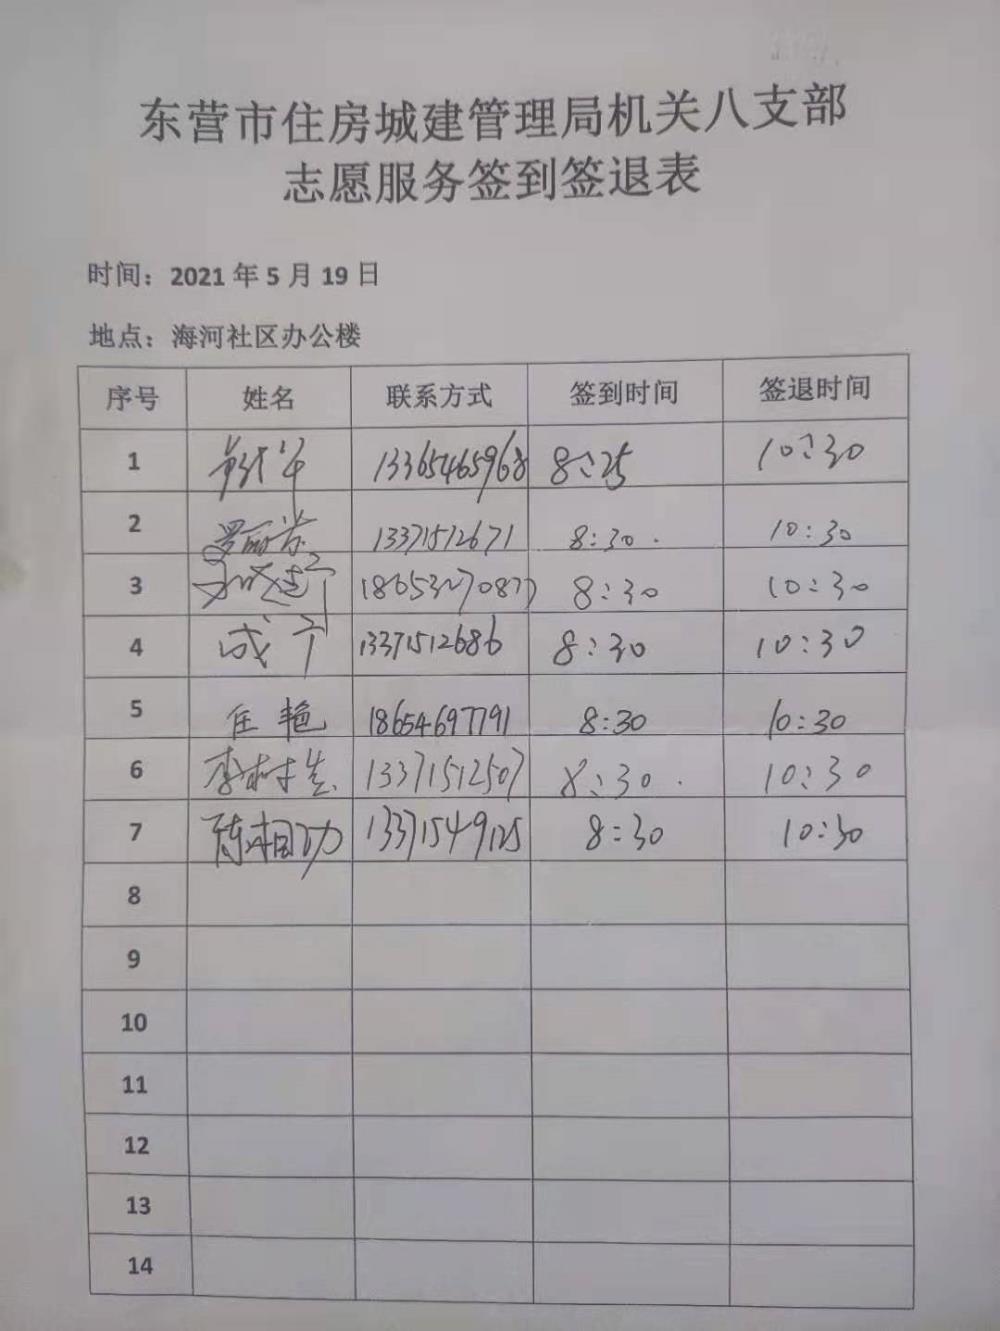 东营市住房城建管理局机关八支部
志愿服务签到签退表
时间：2021 年 5 月 19 日
地点：海河社区办公楼
序号 姓名 联系方式 签到时间 签退时间
1 13365465968 8:25 10:30
2 13371512671 8:30 10:30
3 18653270877 8:30 10:30
4 成宁 13371512686 8:30 10:30
5 任艳 18654697791 8:30 10:30
6 李树生 13371512507 8:30 10:30
7 陈相功 13371549125 8:30 10:30
8
9
10
11
12
13
14